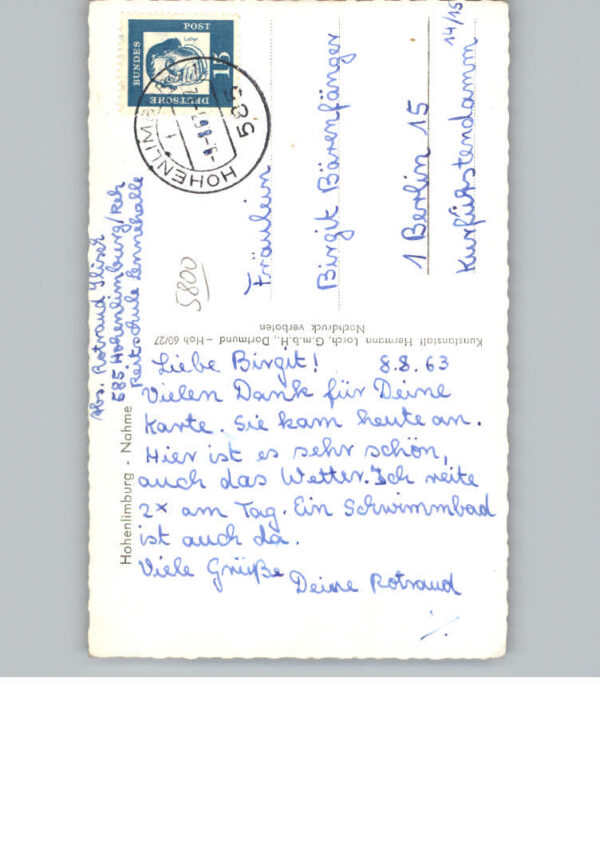 Liebe Birgit! 8.8.63
Vielen Dank für Deine
Karte. Sie kam heute an.
Hier ist es sehr schön,
auch das Wetter. Ich reite
2x am Tag. Ein Schwimmbad
ist auch da.
Viele Grüße
Deine Rotraud
Abs. Rotraud
585 Hohenlimburg/Reh
Reitschule Lennehalle
Hohenlimburg - Nahme
Kunstanstalt Hermann Lorch, G.m.b.H., Dortmund – Hoh 60/27
Nachdruck verboten
5800
DEUTSCHE
BUNDES
POST
15
Luther
HOHENLIMBURG
585
Fräulein
Birgit Bärenfänger
1 Berlin 15
Kurfürstendamm
14/15